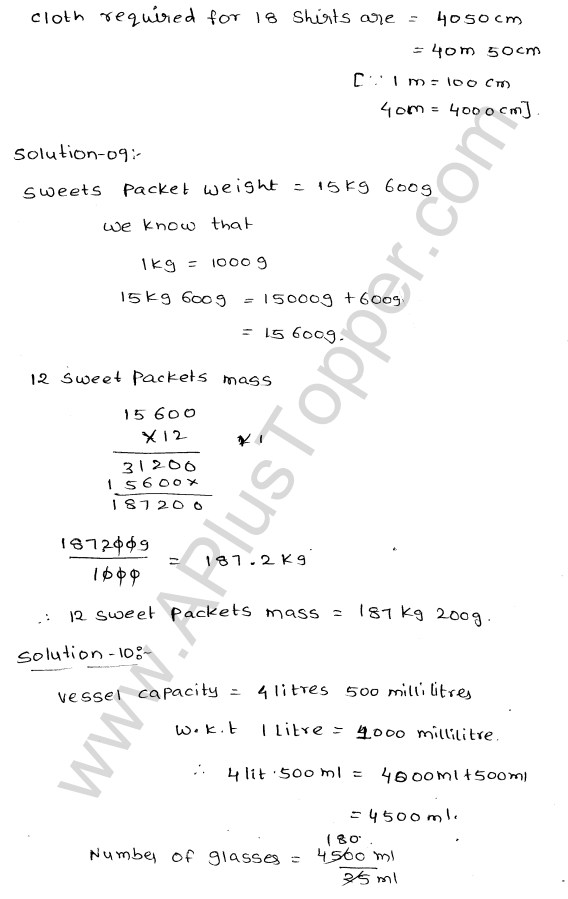 cloth required for 18 shirts are = 4050cm
= 40m 50cm
[∵ 1m = 100cm
40m = 4000cm].
Solution-09:-
Sweets Packet weight = 15kg 600g
we know that
1kg = 1000g
15kg 600g = 15000g + 600g
= 15600g.
12 sweet Packets mass
15600
×12 ×1
31200
15600×
187200
187200g/1000 = 187.2kg
∴ 12 sweet Packets mass = 187kg 200g.
Solution-10:-
vessel capacity = 4 litres 500 millilitres
w.k.t 1 Litre = 1000 millilitre.
∴ 4 lit.500ml = 4000ml+500ml
= 4500ml.
180
Number of glasses = 4500 ml
25 ml
www.APlusTopper.com